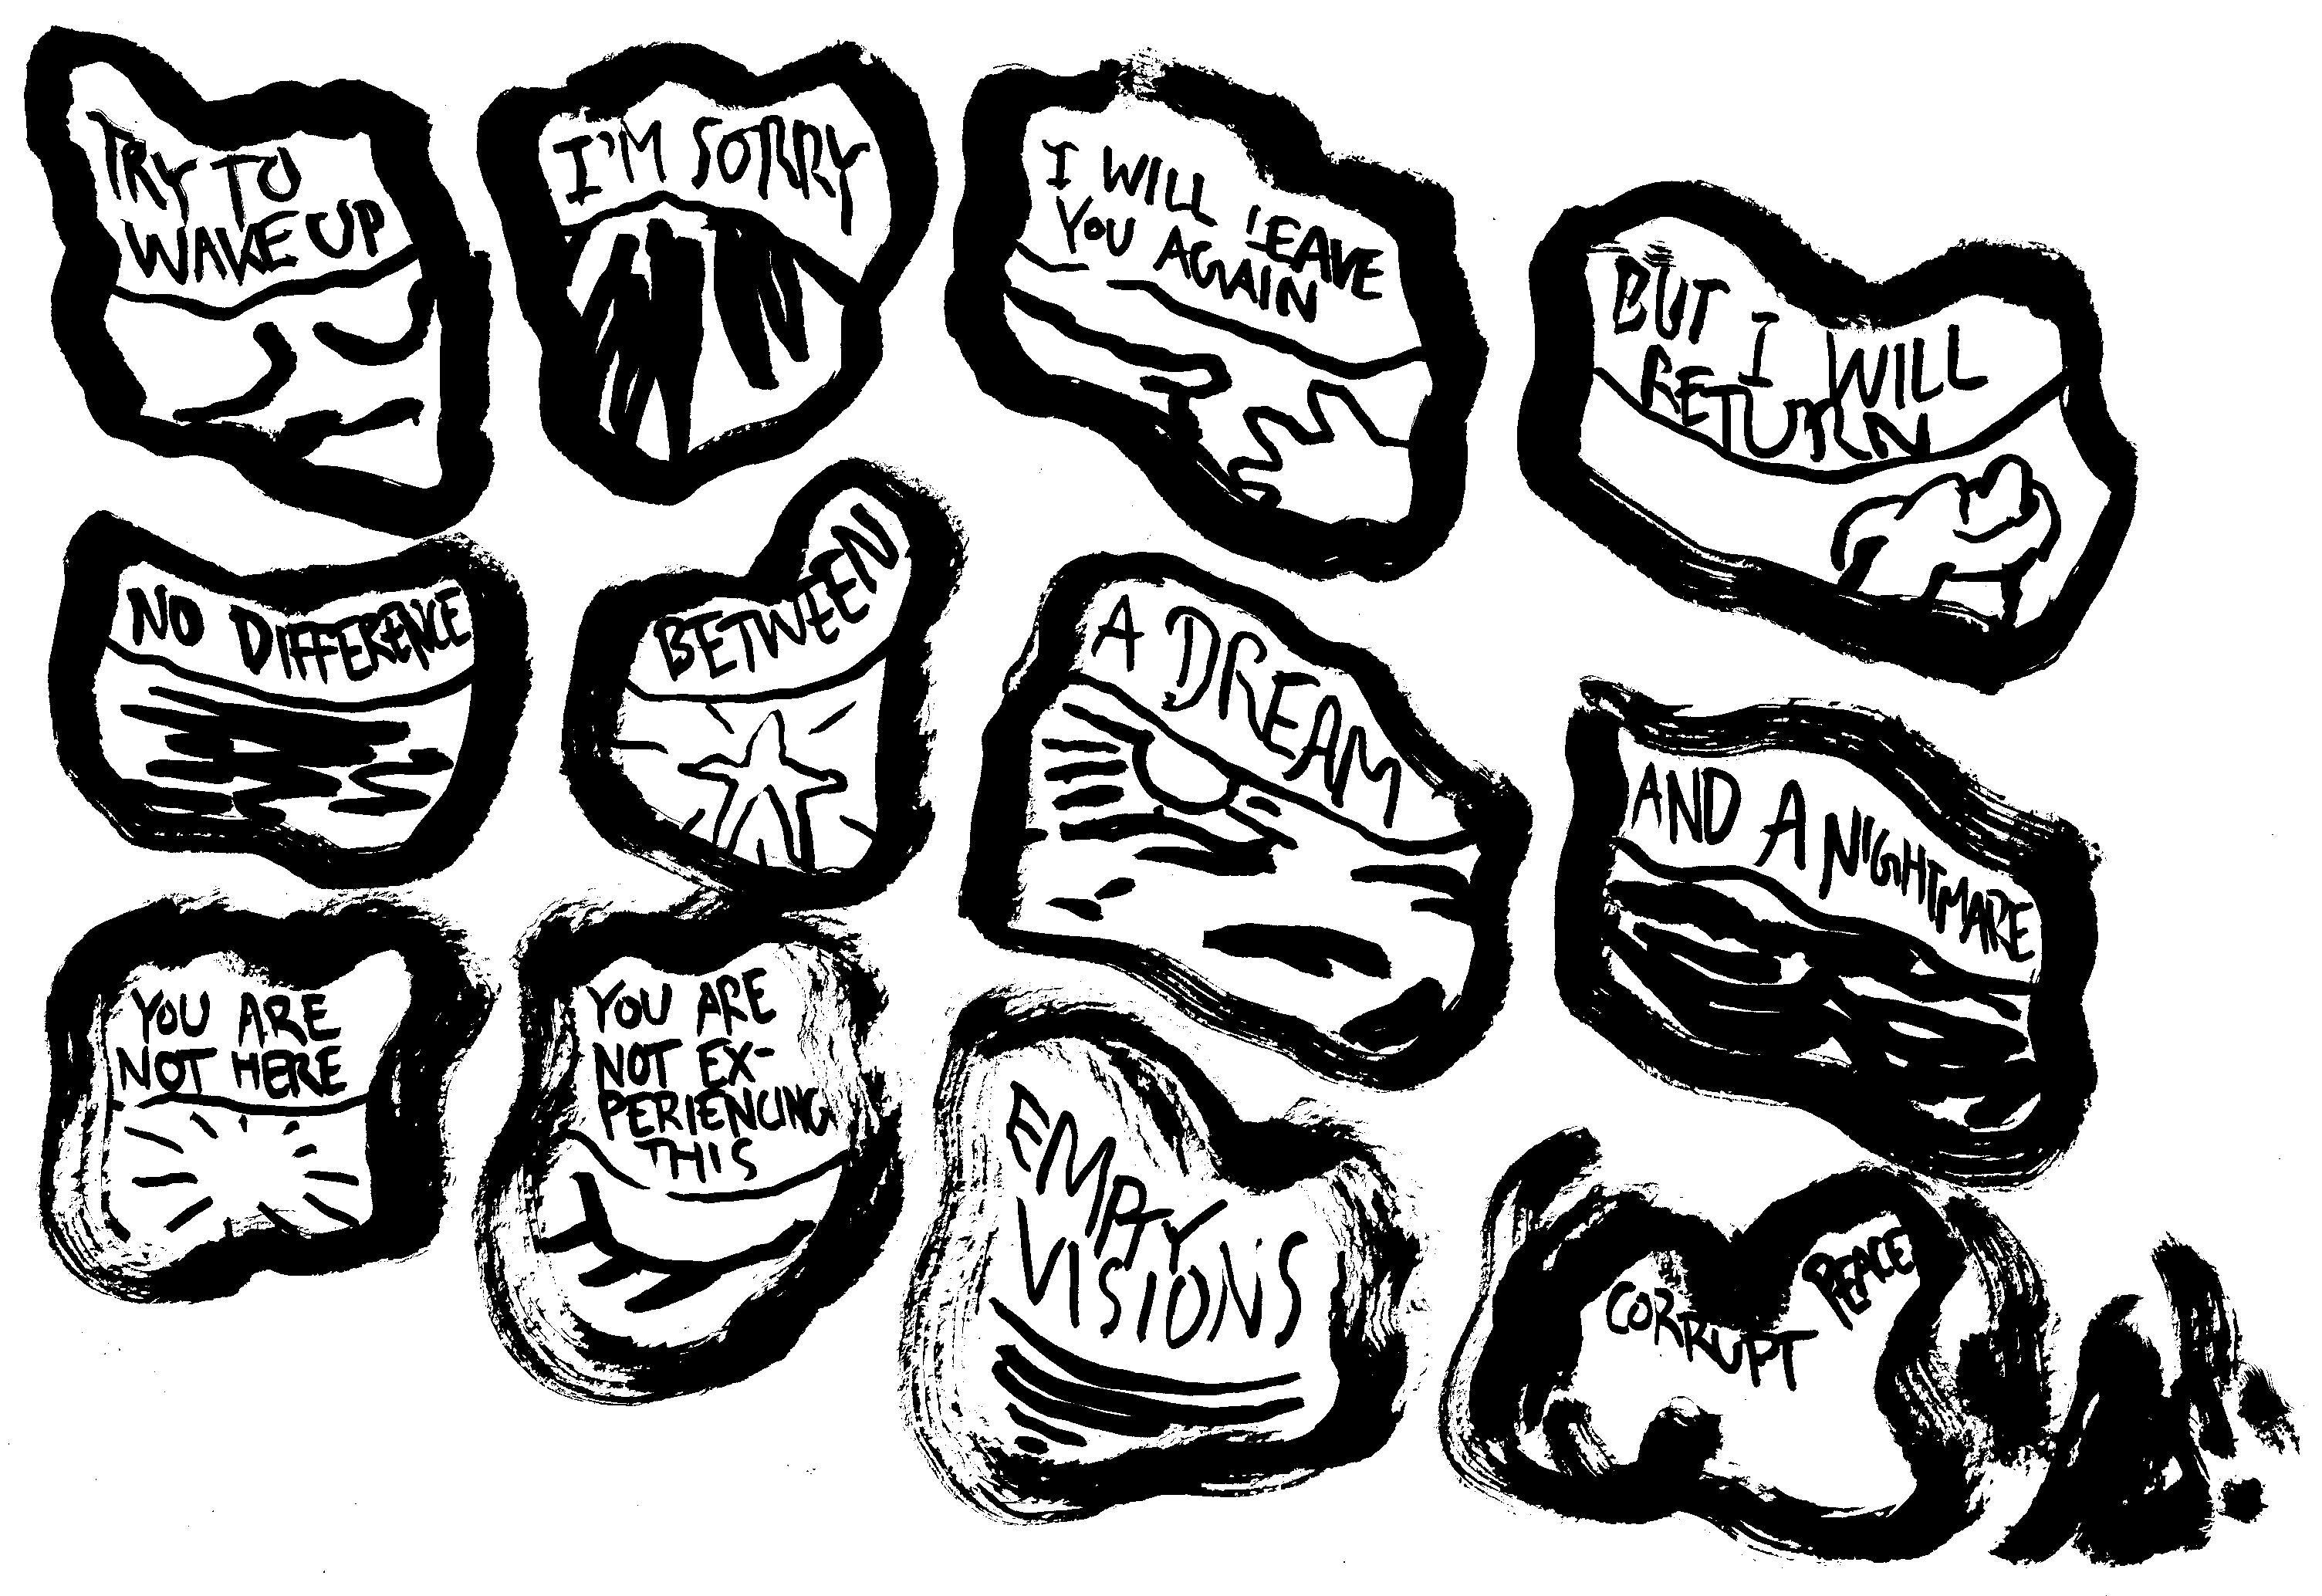 TRY TO
WAKE UP
I'M SORRY
I WILL LEAVE
YOU AGAIN
BUT I WILL
RETURN
NO DIFFERENCE
BETWEEN
A DREAM
AND A NIGHTMARE
YOU ARE
NOT HERE
YOU ARE
NOT EX-
PERIENCING
THIS
EMPTY
VISIONS
CORRUPT PEACE